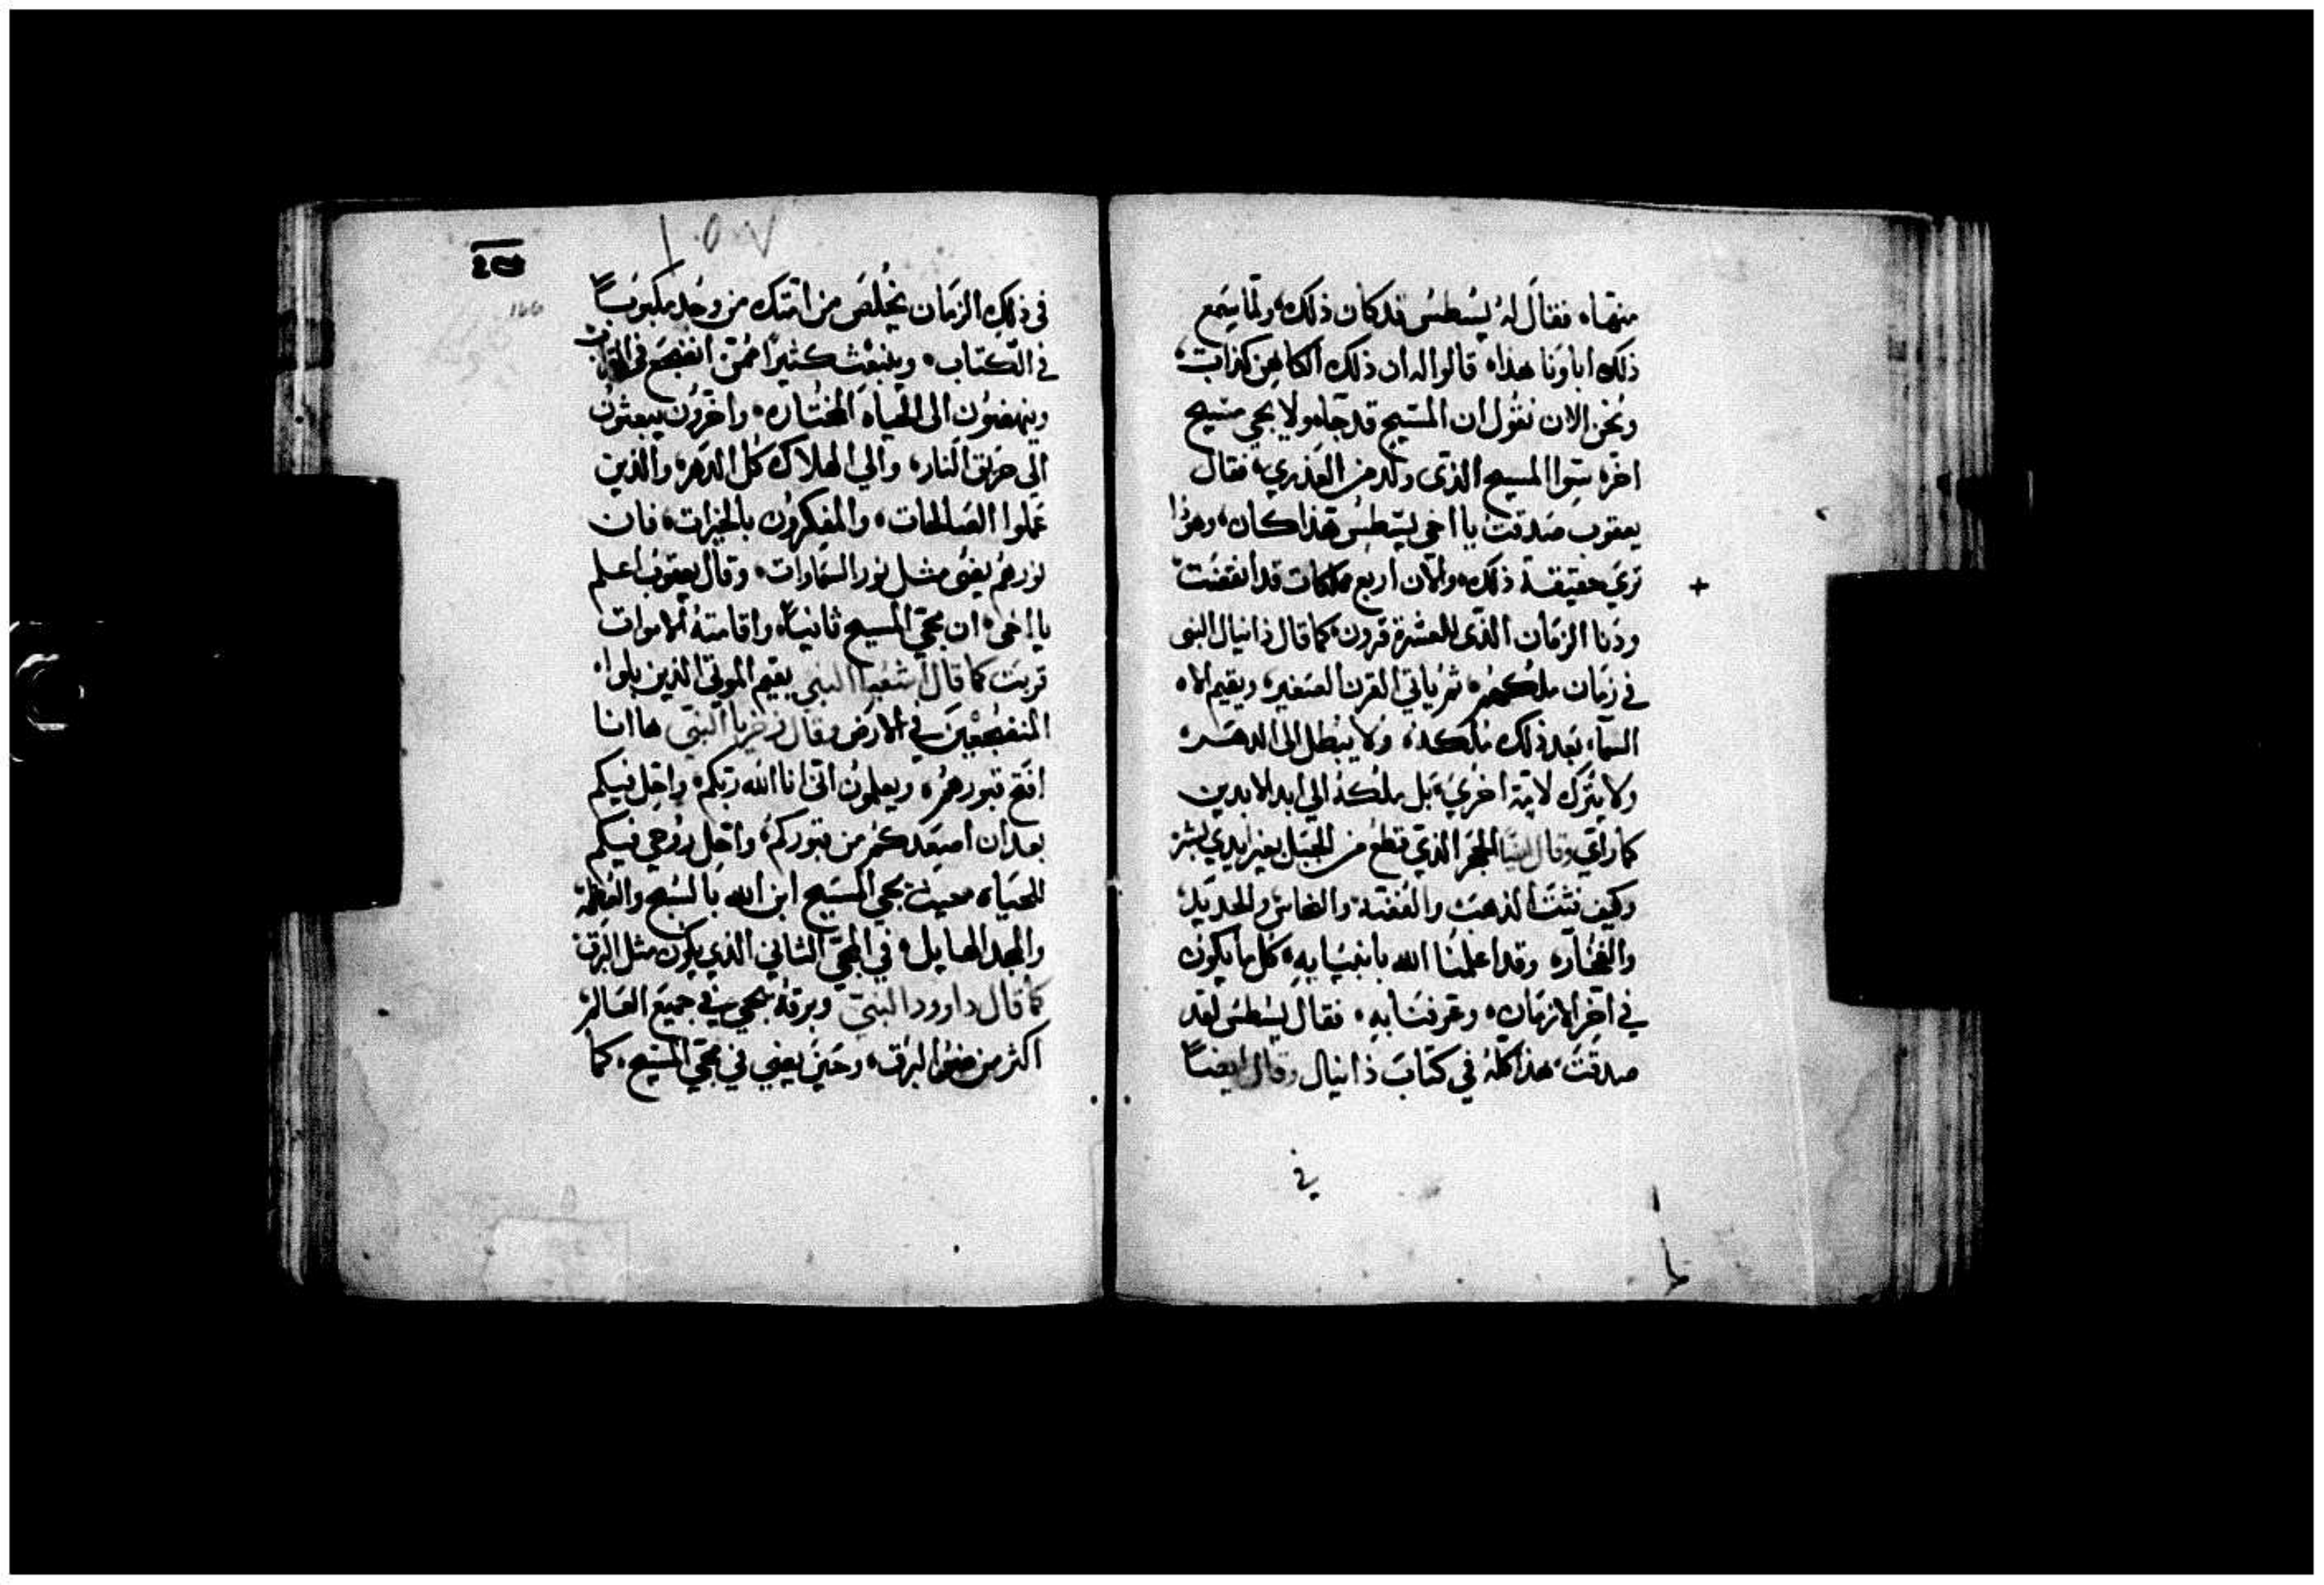 منها، فقال له يسطس قد كان ذلك، ولما سمع
ذلك اباونا هذا، قالوا له ان ذلك الكاهن كذاب،
ونحن الان نقول ان المسيح قد جاء، ولا يجي مسيح
اخر، سوا المسيح الذي ولد من العذري، فقال
يعقوب صدقت يا اخي يسطس هذا كان، وهوذا
نري حقيقة ذلك، والان اربع مملكات قد انقضت
ودنا الزمان الذي للعشرة قرون، كما قال دانيال النبي
في زمان ملكهم، ثم ياتي القرن الصغير، ويقيم الاه
السماء بعد ذلك ملكه، ولا يبطل الى الدهر،
ولا يترك لامة اخري، بل ملكه الي ابد الابدين
كما راي وقال ايضا الحجر الذي قطع من الجبل بغير ايدي بشر
وكيف فتت الذهب والفضة والنحاس والحديد،
والفخار، وقد اعلمنا الله بانبيايه، كل ما يكون
في اخر الازمان، وعرفنا به، فقال يسطس لقد
صدقت، هذا كله في كتاب دانيال وقال ايضا
في
١٥٧
في ذلك الزمان يخلص من امتك من وجد مكتوبا
في الكتاب، وينبعث كثيرا ممن انضجع في التراب
وينهضون الى الحياه المختاره، واخرون يبعثون
الى حريق النار، والي الهلاك كل الدهر، والذين
عملوا الصالحات، والمفكرون بالخيرات، فان
نورهم يضى مثل نور السماوات، وقال يعقوب اعلم
يا اخى، ان مجي المسيح ثانيا، واقامته الاموات
قربت كما قال اشعيا النبي يقيم الموتى الذين بلوا،
المنضجعين في الارض وقال حزقيا النبي هاانا
افتح قبورهم، ويعلمون انى انا الله ربكم، واحل فيكم
بعد ان اصعدكم من قبوركم، واحل روحي فيكم
للحياه، حيث يجي المسيح ابن الله بالسبح والعظمه
والمجد الهايل، في المجي الثاني الذي يكون مثل البرق
كما قال داوود النبي وبرقه يجي في جميع العالم،
اكثر من ضوا البرق، وحين يعني في مجي المسيح، كما